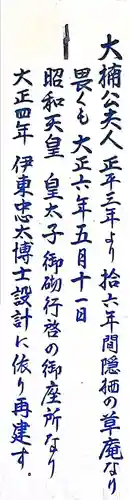 大楠公夫人正平三年より拾六年間隠栖の草庵なり
畏くも大正六年五月十一日
昭和天皇 皇太子御砌行啓の御座所なり
大正四年 伊東忠太博士設計に依り再建す。